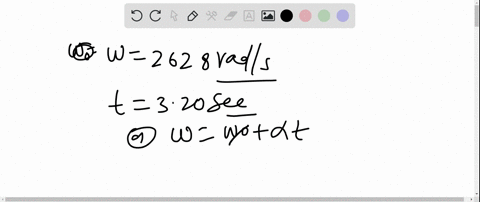 ω = 2628 rad/s
t = 3.20 sec
ⓐ ω = ω0 + αt